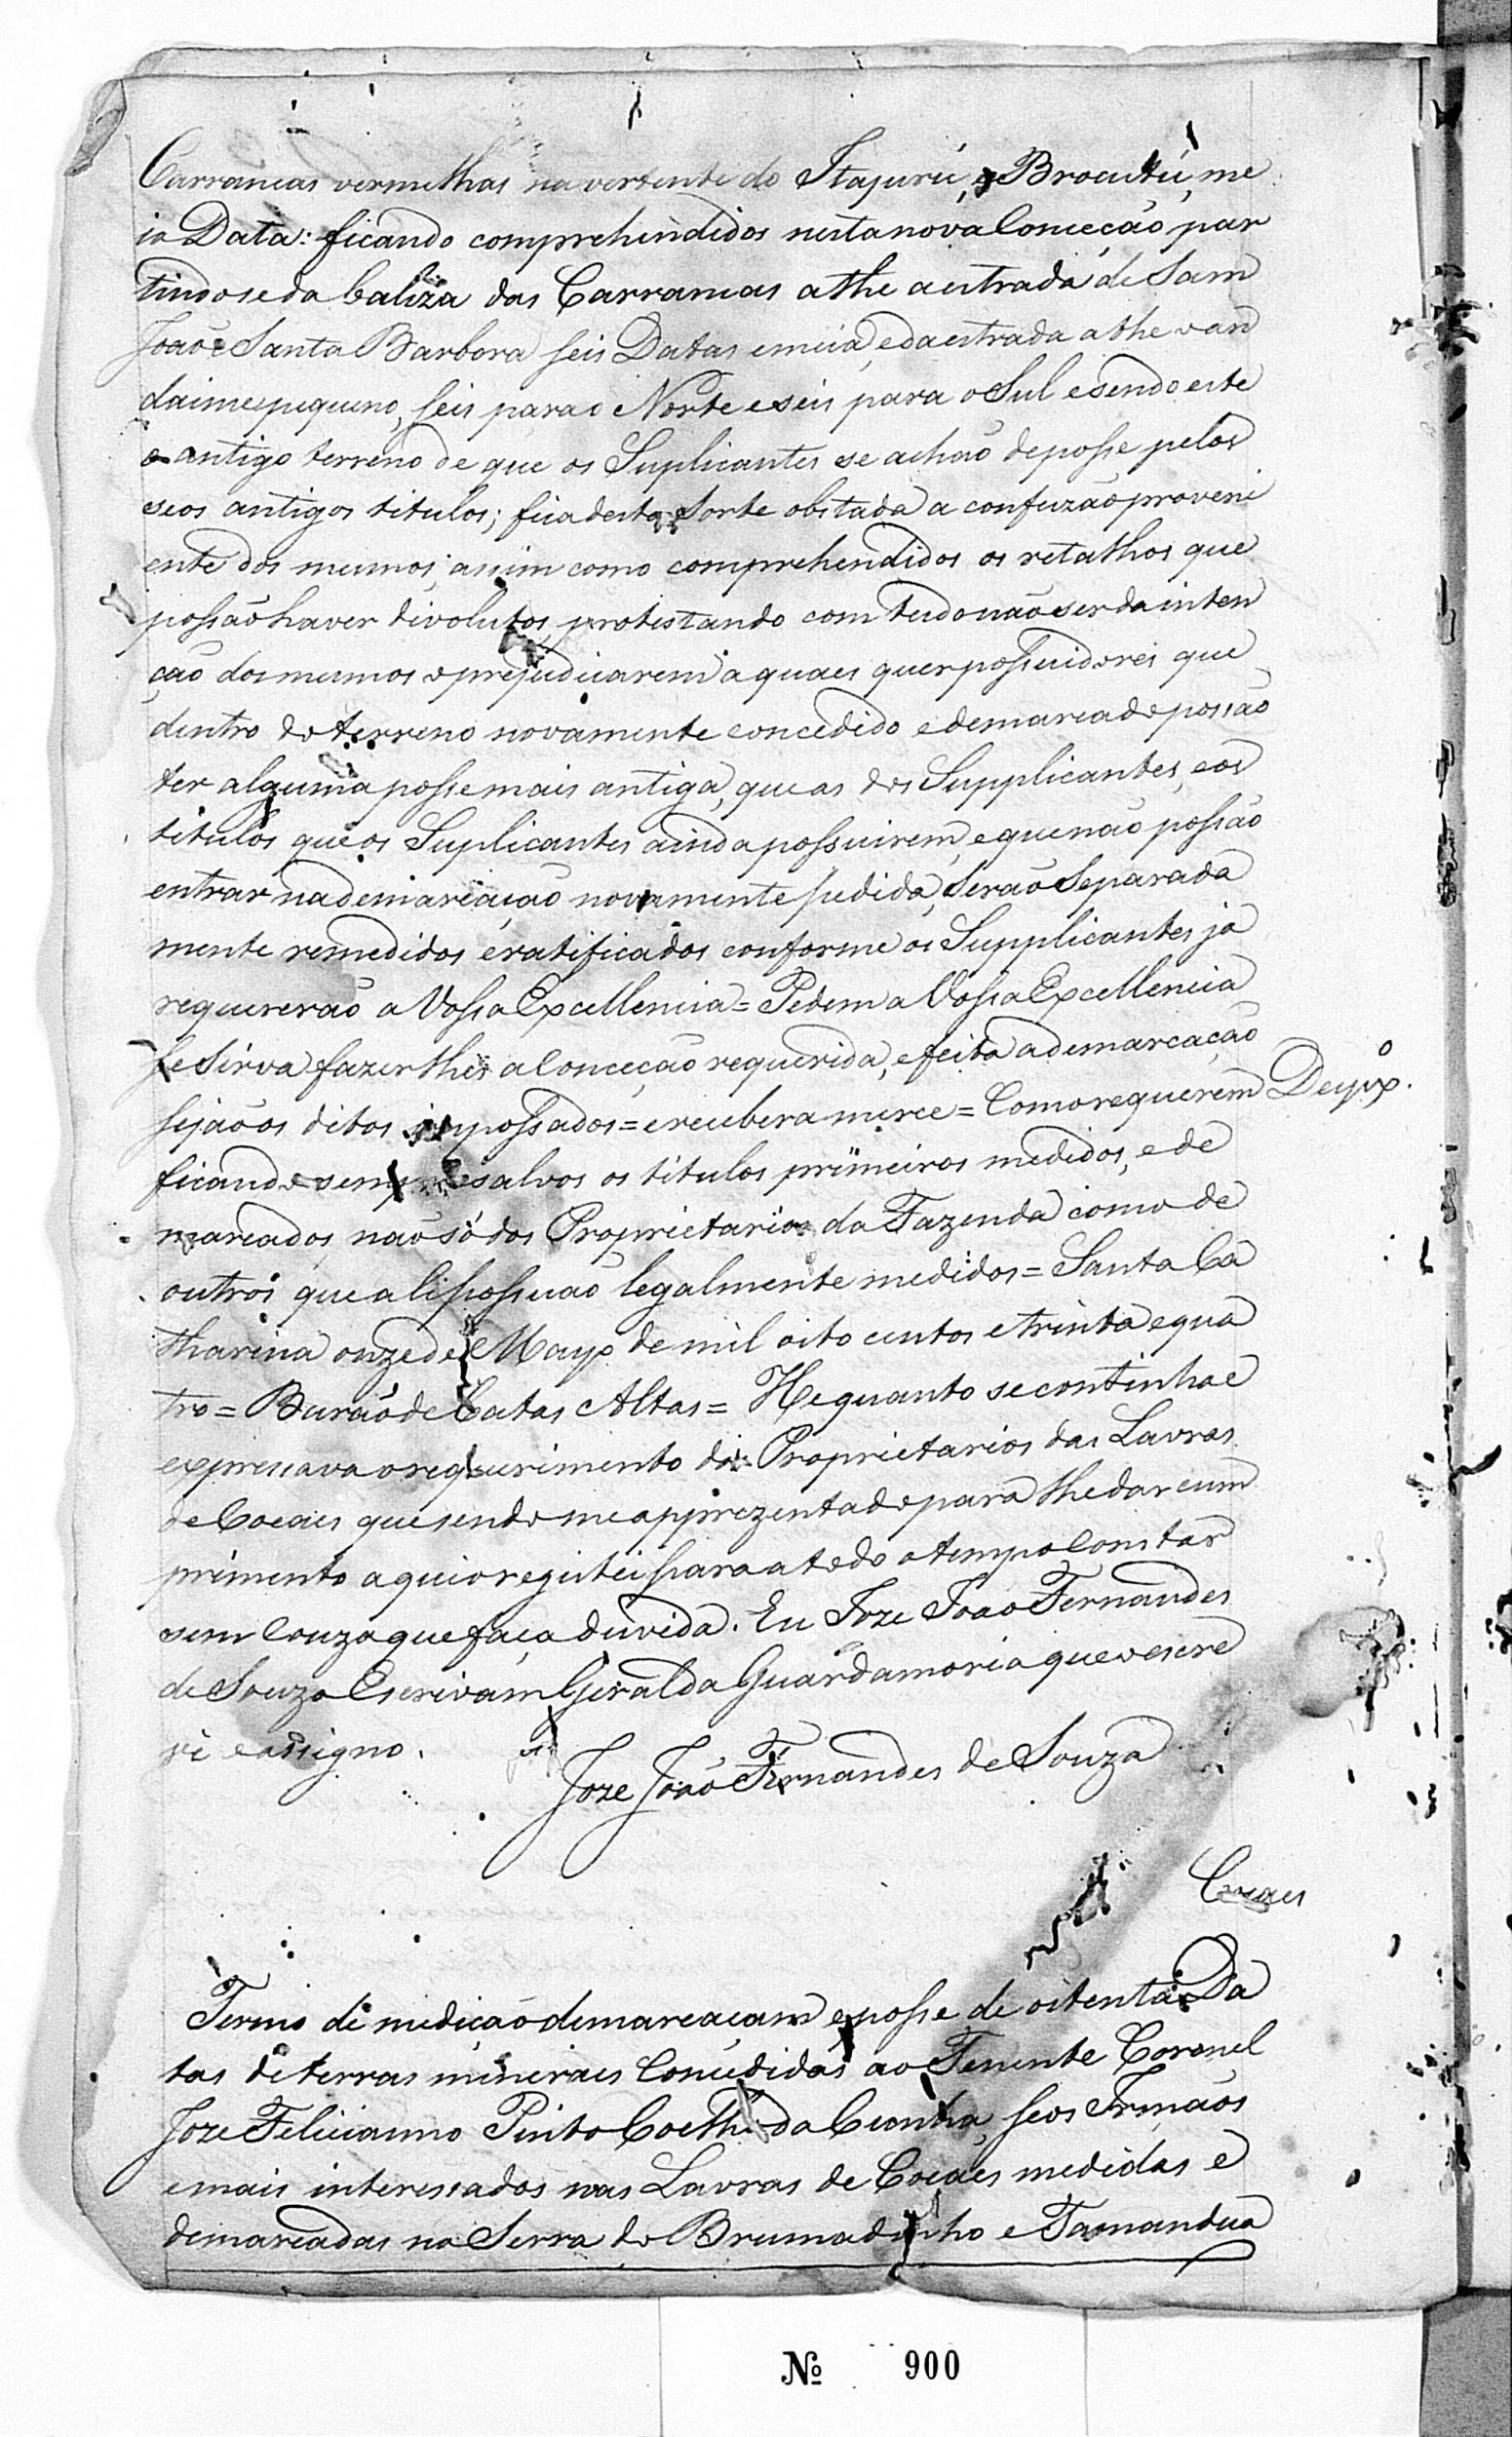 Carrancas vermelhas na vertente do Itajurú, e Brocutú, me
ia Data: ficando comprehendidos nesta nova Conceção, par
tindose da baliza das Carrancas athe a estrada de Sam
João e Santa Barbora seis Datas e meia, e da estrada athe o an
daime pequeno, seis para o Norte e seis para o Sul e sendo este
o antigo terreno de que os Suplicantes se achão de posse pelos
seos antigos titulos; fica desta Sorte obstada a confuzão proveni
ente dos mesmos, assim como comprehendidos os retalhos que
possão haver divolutos, protestando com tudo não ser da inten
ção dos mesmos o prejudicarem a quaes quer possuidores que
dentro do terreno novamente concedido e demarcado possão
ter alguma posse mais antiga, que as dos Supplicantes, e os
titulos que os Suplicantes ainda possuirem, e que não possão
entrar na demarcação novamente pedida, Serão Separada
mente remedidos e ratificados conforme os Supplicantes já
requererão a Vossa Excellencia = Pedem a Vossa Excellencia
se Sirva fazer lhes a Conceção requerida, e feita a demarcação
sejão os ditos impossados = e recebera merce = Como requerem Despxº.
ficando sempre salvos os titulos primeiros medidos, e de
marcados, não só dos Proprietarios da Fazenda como de
outros que ali possuão legalmente medidos = Santa Ca
tharina onze de Mayo de mil oito centos e trinta e qua
tro = Barão de Catas Altas = He quanto se continha e
expressava o requerimento dos Proprietarios das Lavras
de Cocaes que sendo me apprezentado para lhe dar cum
primento aqui o registei para a todo o tempo Constar
sem Couza que faça duvida. Eu Joze João Fernandes
de Souza Escrivam Geral da Guardamoria que o escre
vi e assigno.
Joze João Fernandes de Souza
Cocaes
Termo de medição demarcaçam e posse de oitenta Da
tas de terras mineraes Concedidas ao Tenente Coronel
Joze Felicianno Pinto Coelho da Cunha, seos Irmãos
e mais interessados nas Lavras de Cocaes medidas e
demarcadas na Serra do Brumadinho e Tamandua
№ 900